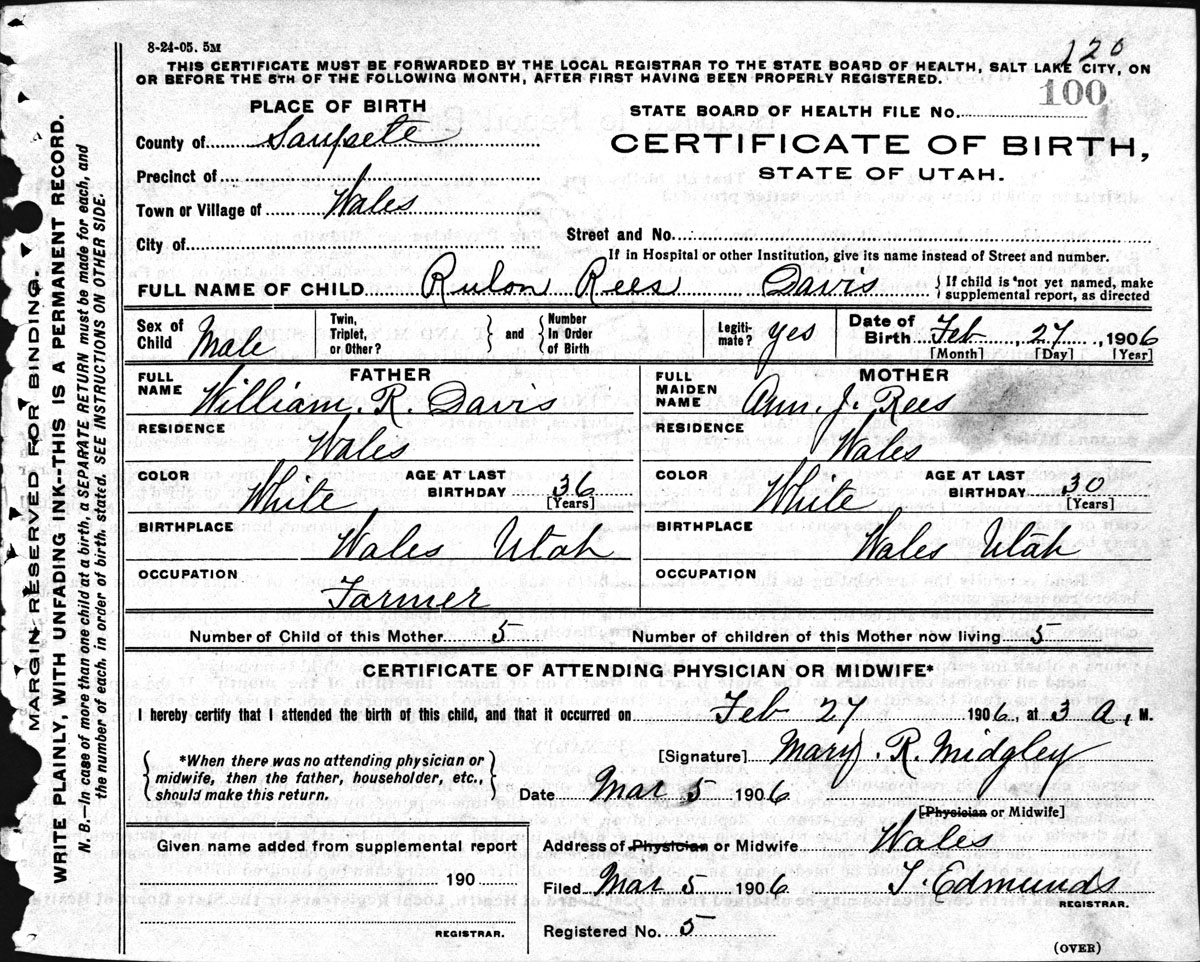 8-24-05. 5M
120
THIS CERTIFICATE MUST BE FORWARDED BY THE LOCAL REGISTRAR TO THE STATE BOARD OF HEALTH, SALT LAKE CITY, ON
OR BEFORE THE 5TH OF THE FOLLOWING MONTH, AFTER FIRST HAVING BEEN PROPERLY REGISTERED.
PLACE OF BIRTH
STATE BOARD OF HEALTH FILE No. 100
County of Sanpete
CERTIFICATE OF BIRTH,
Precinct of
STATE OF UTAH.
Town or Village of Wales
City of Street and No.
If in Hospital or other Institution, give its name instead of Street and number.
FULL NAME OF CHILD Rulon Rees Davis { If child is not yet named, make supplemental report, as directed
Sex of Child Male Twin, Triplet, or Other? } and { Number In Order of Birth Legiti- mate? yes Date of Birth Feb 27, 1906
[Month] [Day] [Year]
FATHER
FULL NAME William. R. Davis
RESIDENCE Wales
COLOR White AGE AT LAST BIRTHDAY 36 [Years]
BIRTHPLACE Wales Utah
OCCUPATION Farmer
MOTHER
FULL MAIDEN NAME Ann. J. Rees
RESIDENCE Wales
COLOR White AGE AT LAST BIRTHDAY 30 [Years]
BIRTHPLACE Wales Utah
OCCUPATION
Number of Child of this Mother 5 Number of children of this Mother now living 5
CERTIFICATE OF ATTENDING PHYSICIAN OR MIDWIFE*
I hereby certify that I attended the birth of this child, and that it occurred on Feb 27 1906, at 3 a, M.
{ *When there was no attending physician or
midwife, then the father, householder, etc.,
should make this return. }
[Signature] Mary. R. Midgley
Date Mar 5 1906
[Physician or Midwife]
Given name added from supplemental report
190
REGISTRAR.
Address of Physician or Midwife Wales
Filed Mar 5 1906 T. Edmunds
REGISTRAR.
Registered No. 5
(OVER)
MARGIN RESERVED FOR BINDING.
WRITE PLAINLY, WITH UNFADING INK--THIS IS A PERMANENT RECORD.
N. B.--In case of more than one child at a birth, a SEPARATE RETURN must be made for each, and
the number of each, in order of birth, stated. SEE INSTRUCTIONS ON OTHER SIDE.